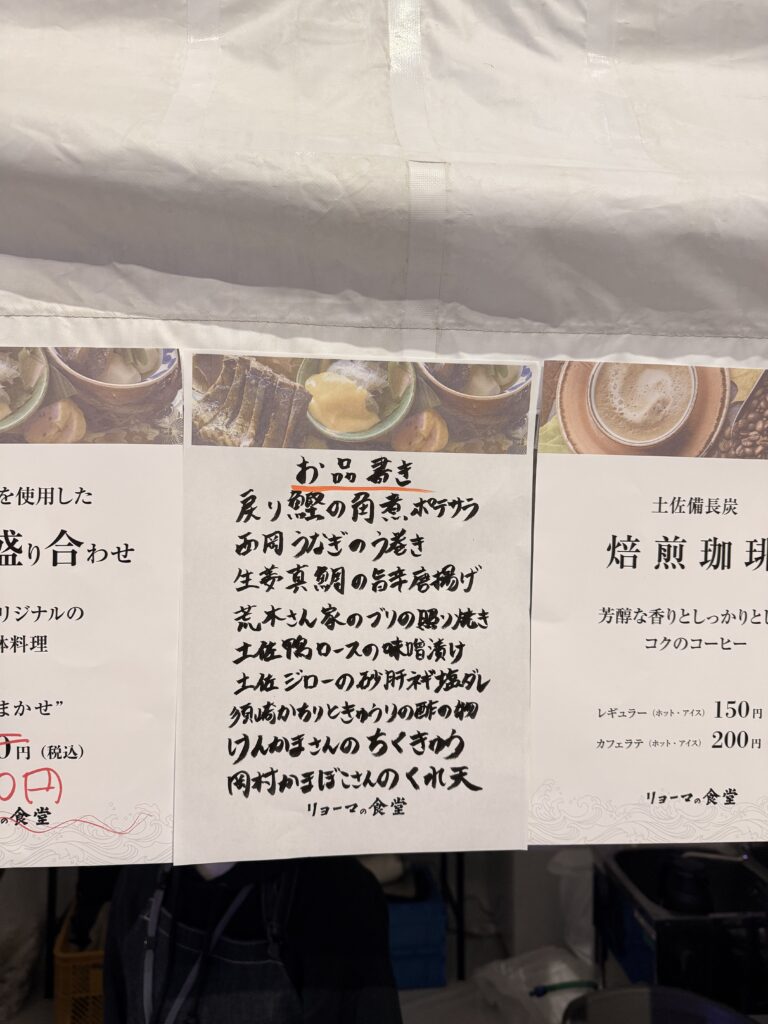 を使用した
盛り合わせ
リジナルの
体料理
まかせ”
0円（税込）
0円
の食堂
お品書き
戻り鰹の角煮ポテサラ
西岡うなぎのう巻き
生夢真鯛の旨辛唐揚げ
荒木さん家のブリの照り焼き
土佐鴨ロースの味噌漬け
土佐ジローの砂肝ネギ塩ダレ
須崎かちりときゅうりの酢の物
けんかまさんのちくきゅう
岡村かまぼこさんのくれ天
リョーマの食堂
土佐備長炭
焙煎珈琲
芳醇な香りとしっかりとし
コクのコーヒー
レギュラー（ホット・アイス） 150円
カフェラテ（ホット・アイス） 200円
リョーマの食堂